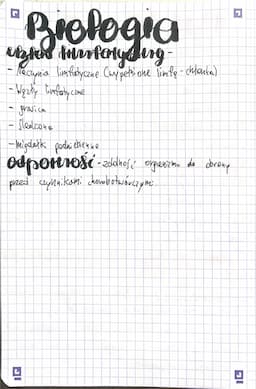 Biologia
układ limfatyczny -
- Naczynia limfatyczne (wypełnione limfą - chłonka)
- Węzły limfatyczne
- grasica
- śledziona
- migdałki podniebienne
odporność - zdolność organizmu do obrony
przed czynnikami chorobotwórczymi